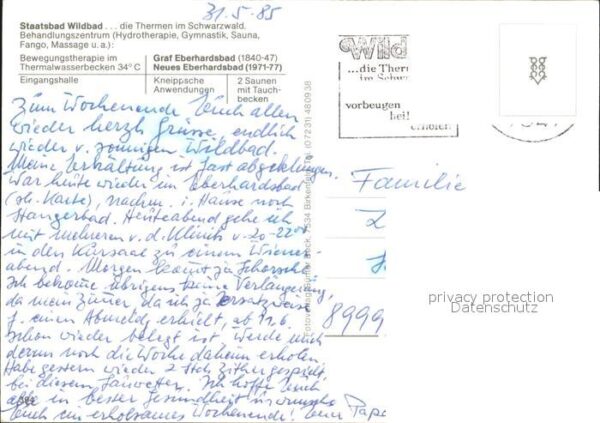 31.5.85
Staatsbad Wildbad . . . die Thermen im Schwarzwald.
Behandlungszentrum (Hydrotherapie, Gymnastik, Sauna,
Fango, Massage u.a.):
Bewegungstherapie im
Thermalwasserbecken 34°C
Graf Eberhardsbad (1840-47)
Neues Eberhardsbad (1971-77)
Eingangshalle
Kneippsche
Anwendungen
2 Saunen
mit Tauch-
becken
Wild
...die Ther
im Schwar
vorbeugen
heil
erholen
Zum Wochenende Euch allen
wieder herzl. Grüsse, endlich
wieder v. sonnigen Wildbad.
Meine Erkältung ist fast abgeklungen.
War heute wieder im Eberhardsbad
(sh. Karte), nachm. i. Hause noch
Stangerbad. Heuteabend gehe ich
mit mehreren v. d. Klinik v. 20-22 Uhr
in den Kursaal zu einem Wiener
abend. Morgen kommt ja Schorsch.
Ich bekomme übrigens keine Verlängerung,
da mein Zimmer, da ich ja
f. einen Abmeldg. erhielt, ab 12.6.
schon wieder belegt ist. Werde mich
darum noch die Woche daheim erholen.
Habe gestern wieder 2 Std. Zither gespielt
bei diesem Sauwetter. Ich hoffe Euch
alle in bester Gesundheit u. wünsche
Euch ein erholsames Wochenende! Euer Papa
Familie
8999
privacy protection
Datenschutz